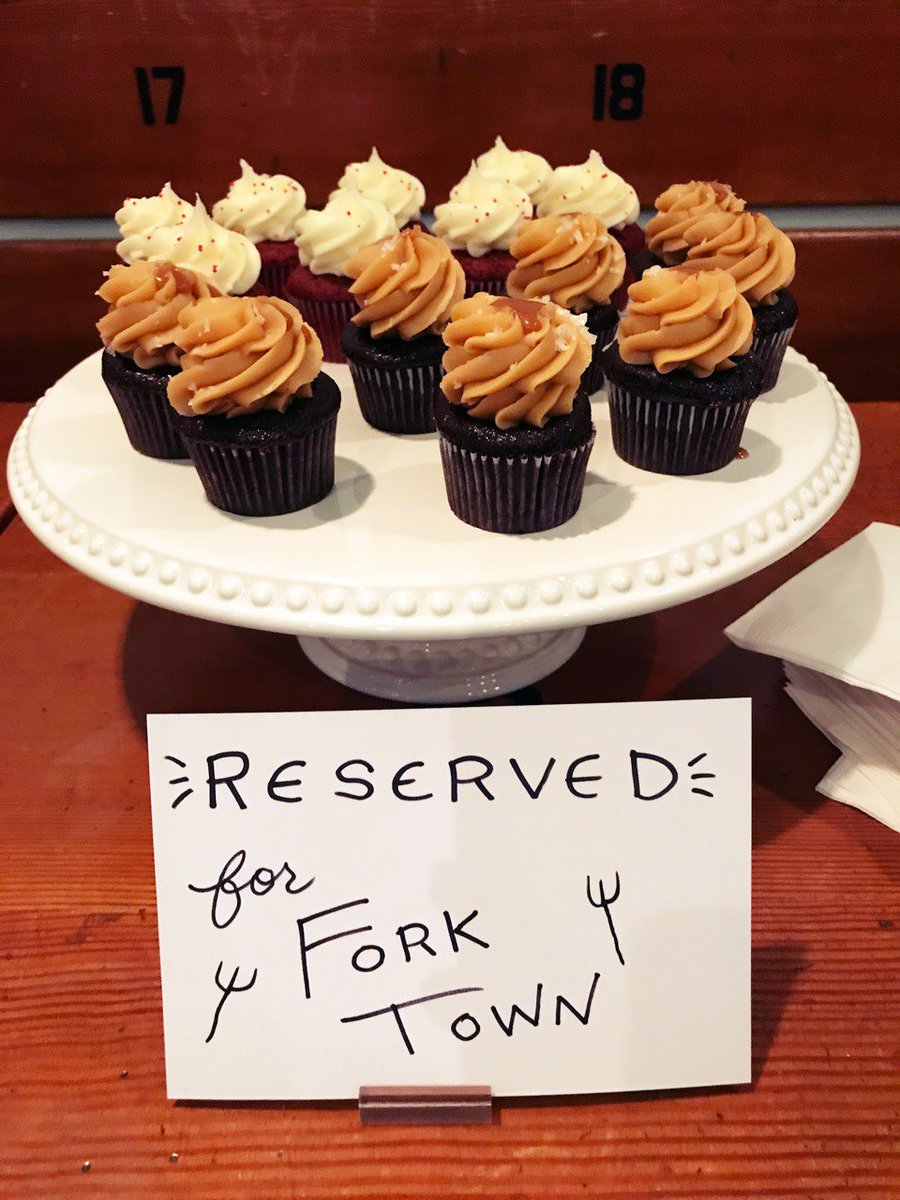 17 18
RESERVED
for
FORK
TOWN